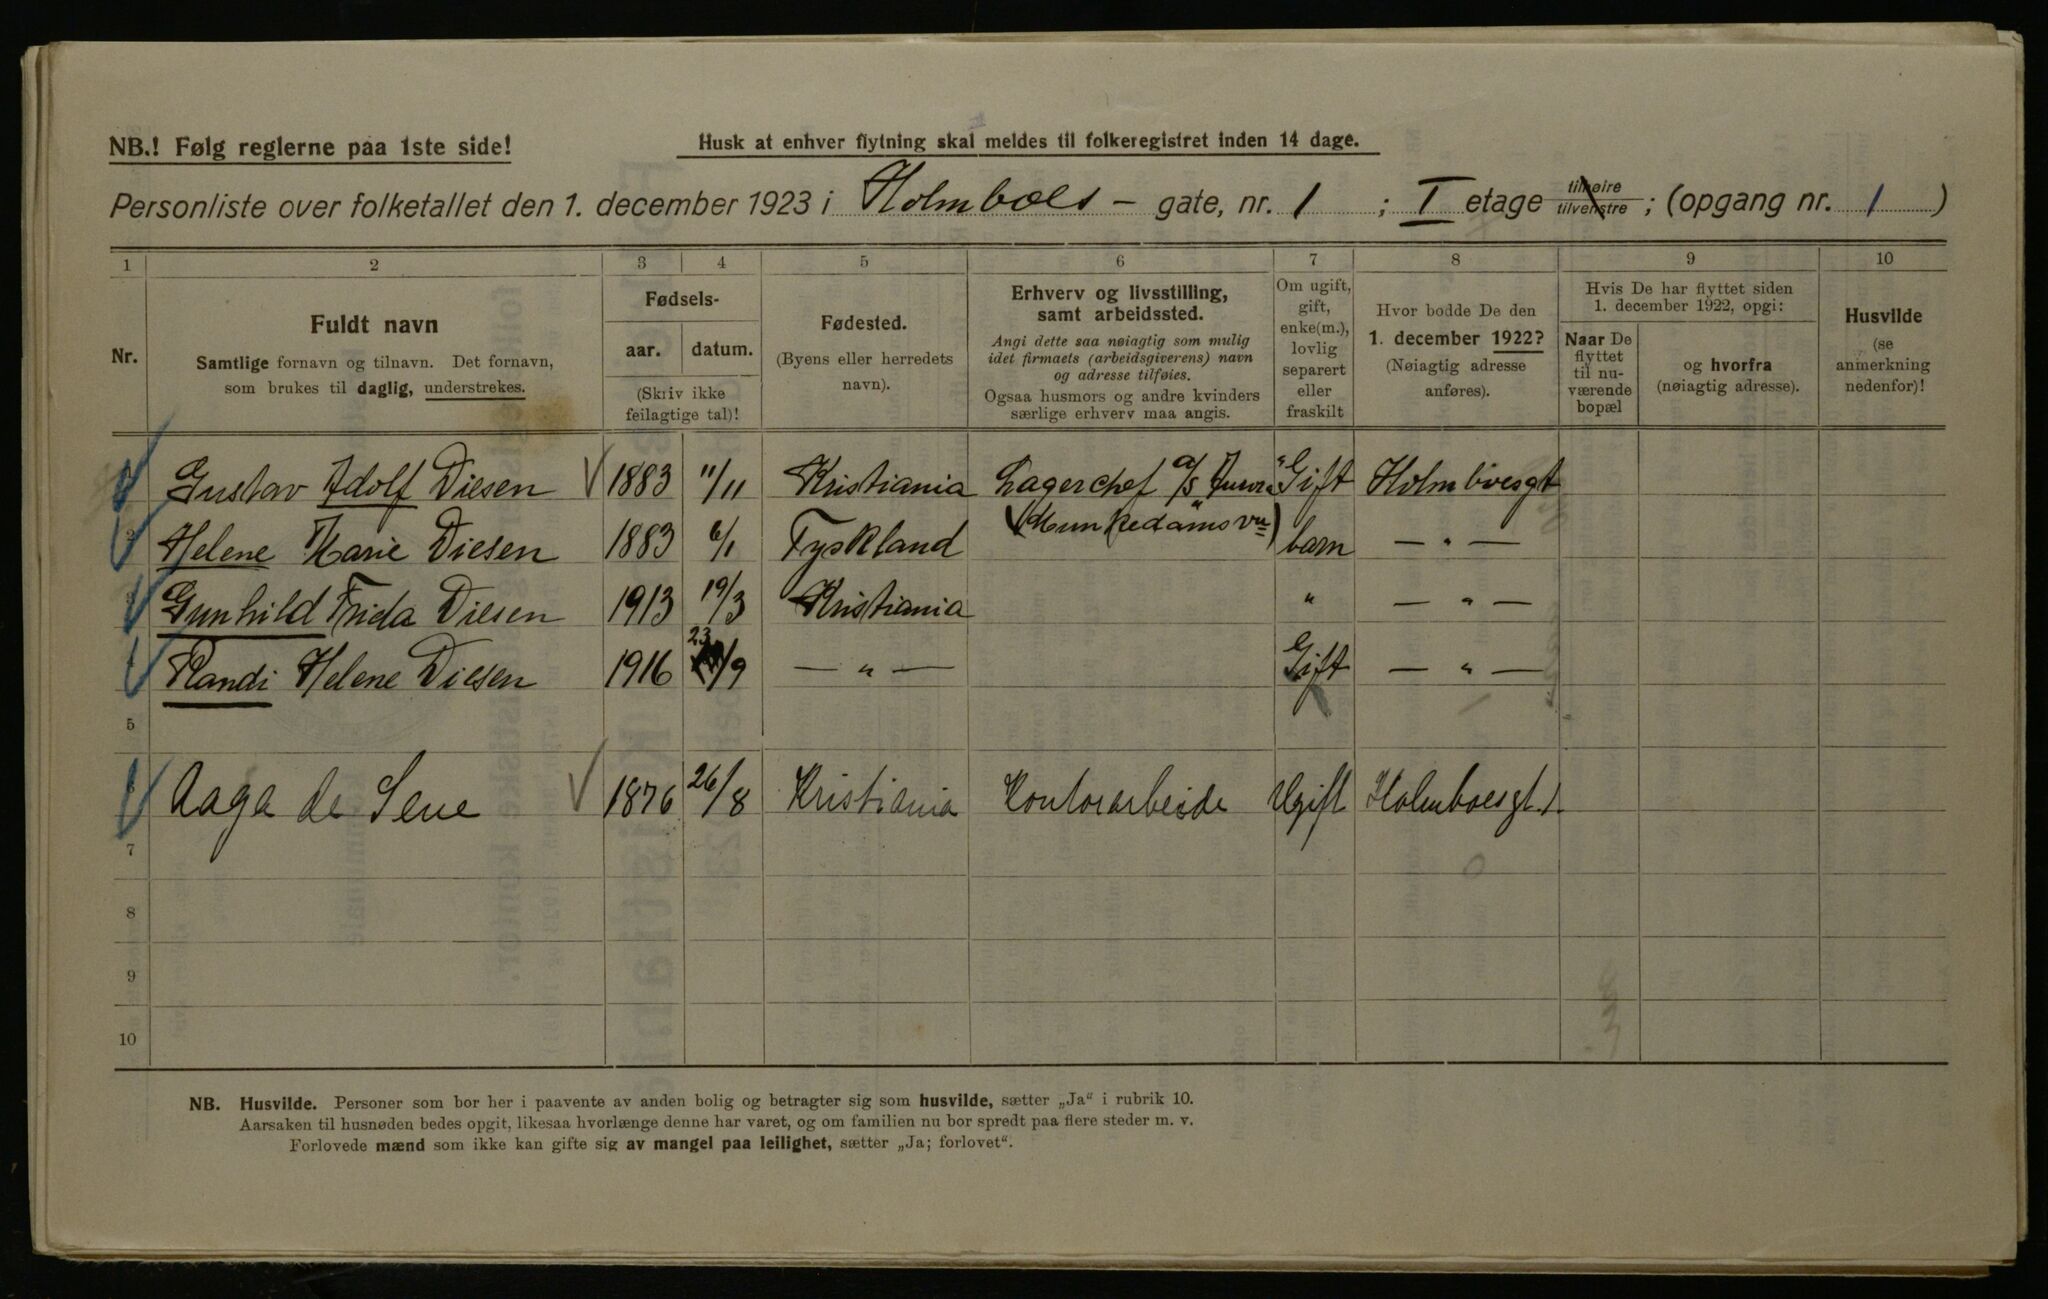 NB.! Følg reglerne paa 1ste side!
Husk at enhver flytning skal meldes til folkeregistret inden 14 dage.
Personliste over folketallet den 1. december 1923 i Holmboes - gate, nr. 1 ; I etage tilhøire tilvenstre ; (opgang nr. 1 )
1 2 3 4 5 6 7 8 9 10
Nr.
Fuldt navn
Samtlige fornavn og tilnavn. Det fornavn,
som brukes til daglig, understrekes.
Fødsels-
aar. datum.
(Skriv ikke
feilagtige tal)!
Fødested.
(Byens eller herredets
navn).
Erhverv og livsstilling,
samt arbeidssted.
Angi dette saa nøiagtig som mulig
idet firmaets (arbeidsgiverens) navn
og adresse tilføies.
Ogsaa husmors og andre kvinders
særlige erhverv maa angis.
Om ugift,
gift,
enke(m.),
lovlig
separert
eller
fraskilt
Hvor bodde De den
1. december 1922?
(Nøiagtig adresse
anføres).
Hvis De har flyttet siden
1. december 1922, opgi:
Naar De
flyttet
til nu-
værende
bopæl
og hvorfra
(nøiagtig adresse).
Husvilde
(se
anmerkning
nedenfor)!
Gustav Adolf Diesen 1883 11/11 Kristiania Lagerchef a/s Gift Holmboesgt
(Munkedamsvn)
2 Helene Marie Diesen 1883 6/1 Tyskland barn — " —
3 Gunhild Frida Diesen 1913 19/3 Kristiania " — " —
Randi Helene Diesen 1916 23/9 — " — Gift — " —
5
Aaga de Seue 1876 26/8 Kristiania Kontorarbeide Ugift Holmboesgt. 1.
7
8
9
10
NB. Husvilde. Personer som bor her i paavente av anden bolig og betragter sig som husvilde, sætter „Ja“ i rubrik 10.
Aarsaken til husnøden bedes opgit, likesaa hvorlænge denne har varet, og om familien nu bor spredt paa flere steder m. v.
Forlovede mænd som ikke kan gifte sig av mangel paa leilighet, sætter „Ja; forlovet“.